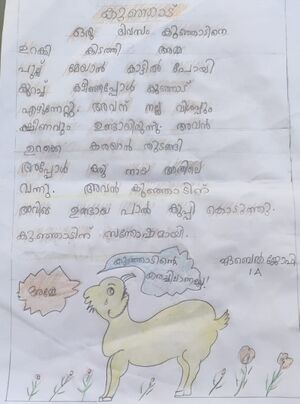 കുഞ്ഞാട്
ഒരു ദിവസം കുഞ്ഞാടിനെ
ഉറക്കി കിടത്തി അമ്മ
പുല്ല് മേയാൻ കാട്ടിൽ പോയി
കുറച്ച് കഴിഞ്ഞപ്പോൾ കുഞ്ഞാട്
എഴുന്നേറ്റു. അവന് നല്ല വിശപ്പും
ക്ഷീണവും ഉണ്ടായിരുന്നു. അവൻ
ഉറക്കെ കരയാൻ തുടങ്ങി
അപ്പോൾ ഒരു നായ അതിലെ
വന്നു. അവൻ കുഞ്ഞാടിന്
അവിടെ ഉണ്ടായ പാൽ കുപ്പി കൊടുത്തു.
കുഞ്ഞാടിന് സന്തോഷമായി.
ഏബെൽ ജോഫി
1A
കുഞ്ഞാടിന്റെ
അമ്മേ